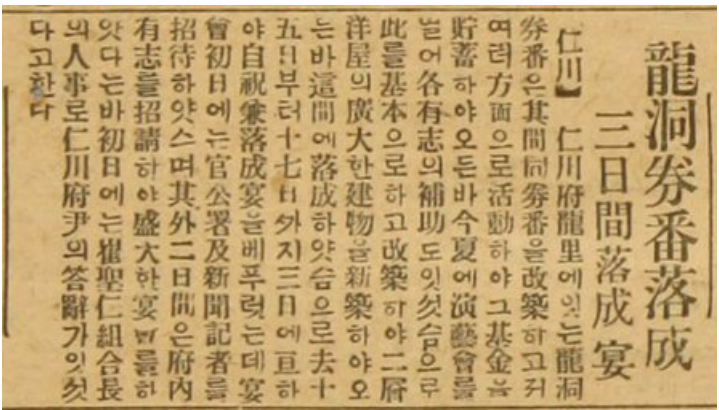 龍洞券番落成
三日間落成宴
【仁川】 仁川府龍里에잇는龍洞
券番은其間同券番을改築하고저
여러方面으로活動하야그基金을
貯蓄하야오든바今夏에演藝會를
열어各有志의補助도잇섯슴으로
此를基本으로하고改築하야二層
洋屋의廣大한建物을新築하야오
는바這間에落成하얏슴으로去十
五日부터十七日외지三日에亘하
야自祝兼落成宴을베푸럿는데宴
會初日에는官公署及新聞記者를
招待하얏스며其外二日間은府內
有志를招請하야盛大한宴會를하
얏다는바初日에는崔聖仁組合長
의人事로仁川府尹의答辭가잇섯
다고한다